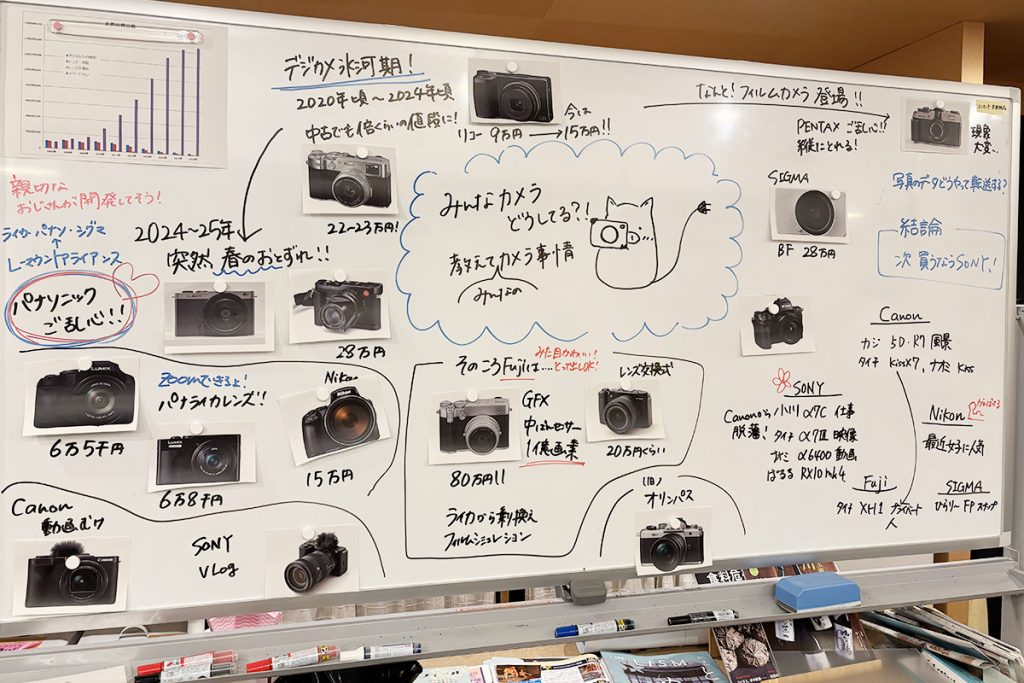 デジカメ氷河期!
2020年頃〜2024年頃
中古でも倍くらいの値段に!
22〜23万円!
リコー 9万円→
今は
15万円!!
なんと!フィルムカメラ登場!!
PENTAX ご乱心!!
現像
大変…
写真のデータどうやって転送する?
結論
次買うならSONY!
SIGMA
BF 28万円
みんなカメラ
どうしてる?!
教えてカメラ事情
みんなの
親切な
おじさんが開発してそう!
ライカ・パナソ・シグマ
↑
Lマウントアライアンス
パナソニック
ご乱心!!
2024〜25年
突然、春のおとずれ!!
28万円
LUMIX
6万5千円
Zoomできるよ!
パナライカレンズ!
LUMIX
6万8千円
Nikon
15万円
そのころFujiは…
みた目かわいい!
とって出しOK!
GFX
中はんセンサー
1億画素
80万円!!
レンズ交換式
20万円ぐらい
ライカから乗り換え
フィルムシミュレーション
(旧)
オリンパス
Canon
動画むけ
Canon
SONY
Vlog
Canon
カジ 5D・R7 風景
タイチ KissX7、ナオミ Kiss
SONY
Canonから
脱落!
小川 α7C 仕事
タイチ α7Ⅲ 映像
ナオミ α6400 動画
はるる RX10mk4
Nikon
最近女子に人気
Fuji
タイチ XH1 プライベート
人
SIGMA
ひらりー FP スナップ
食料店